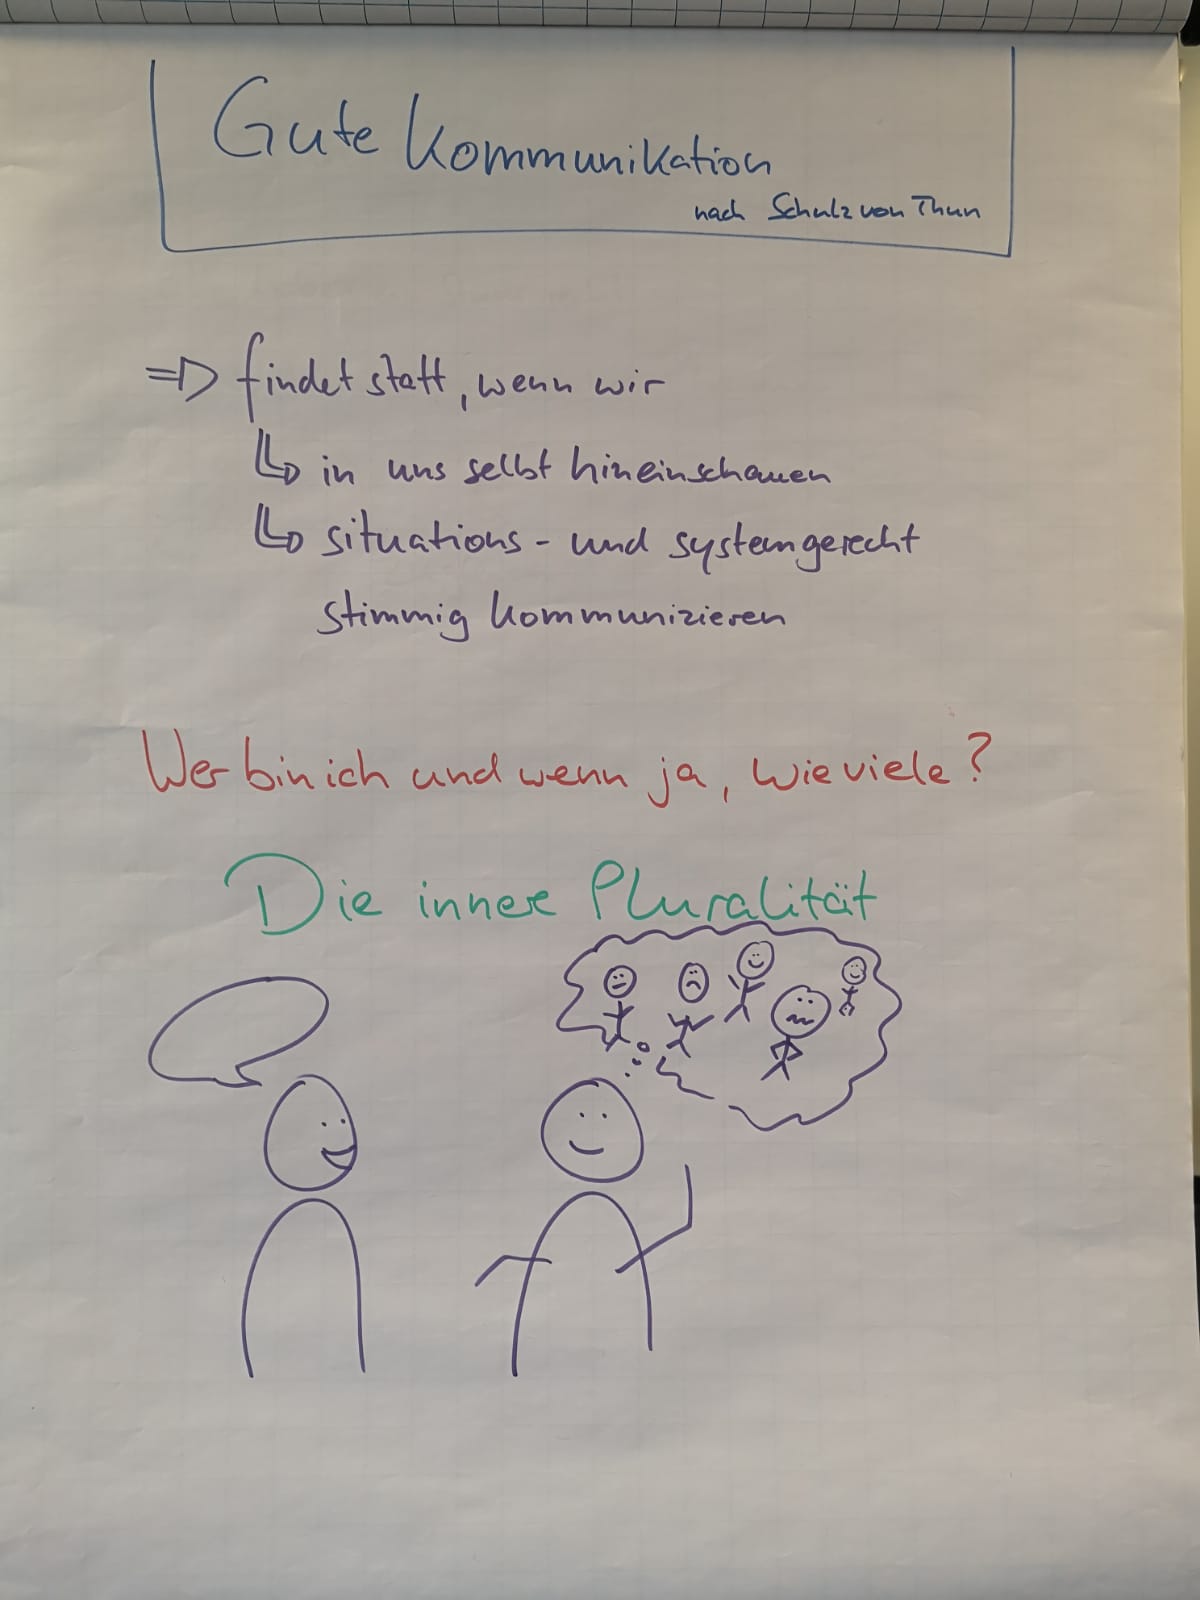 Gute Kommunikation
nach Schulz von Thun
=> findet statt, wenn wir
↳ in uns selbst hineinschauen
↳ situations- und systemgerecht
stimmig kommunizieren
Wer bin ich und wenn ja, wie viele?
Die innere Pluralität